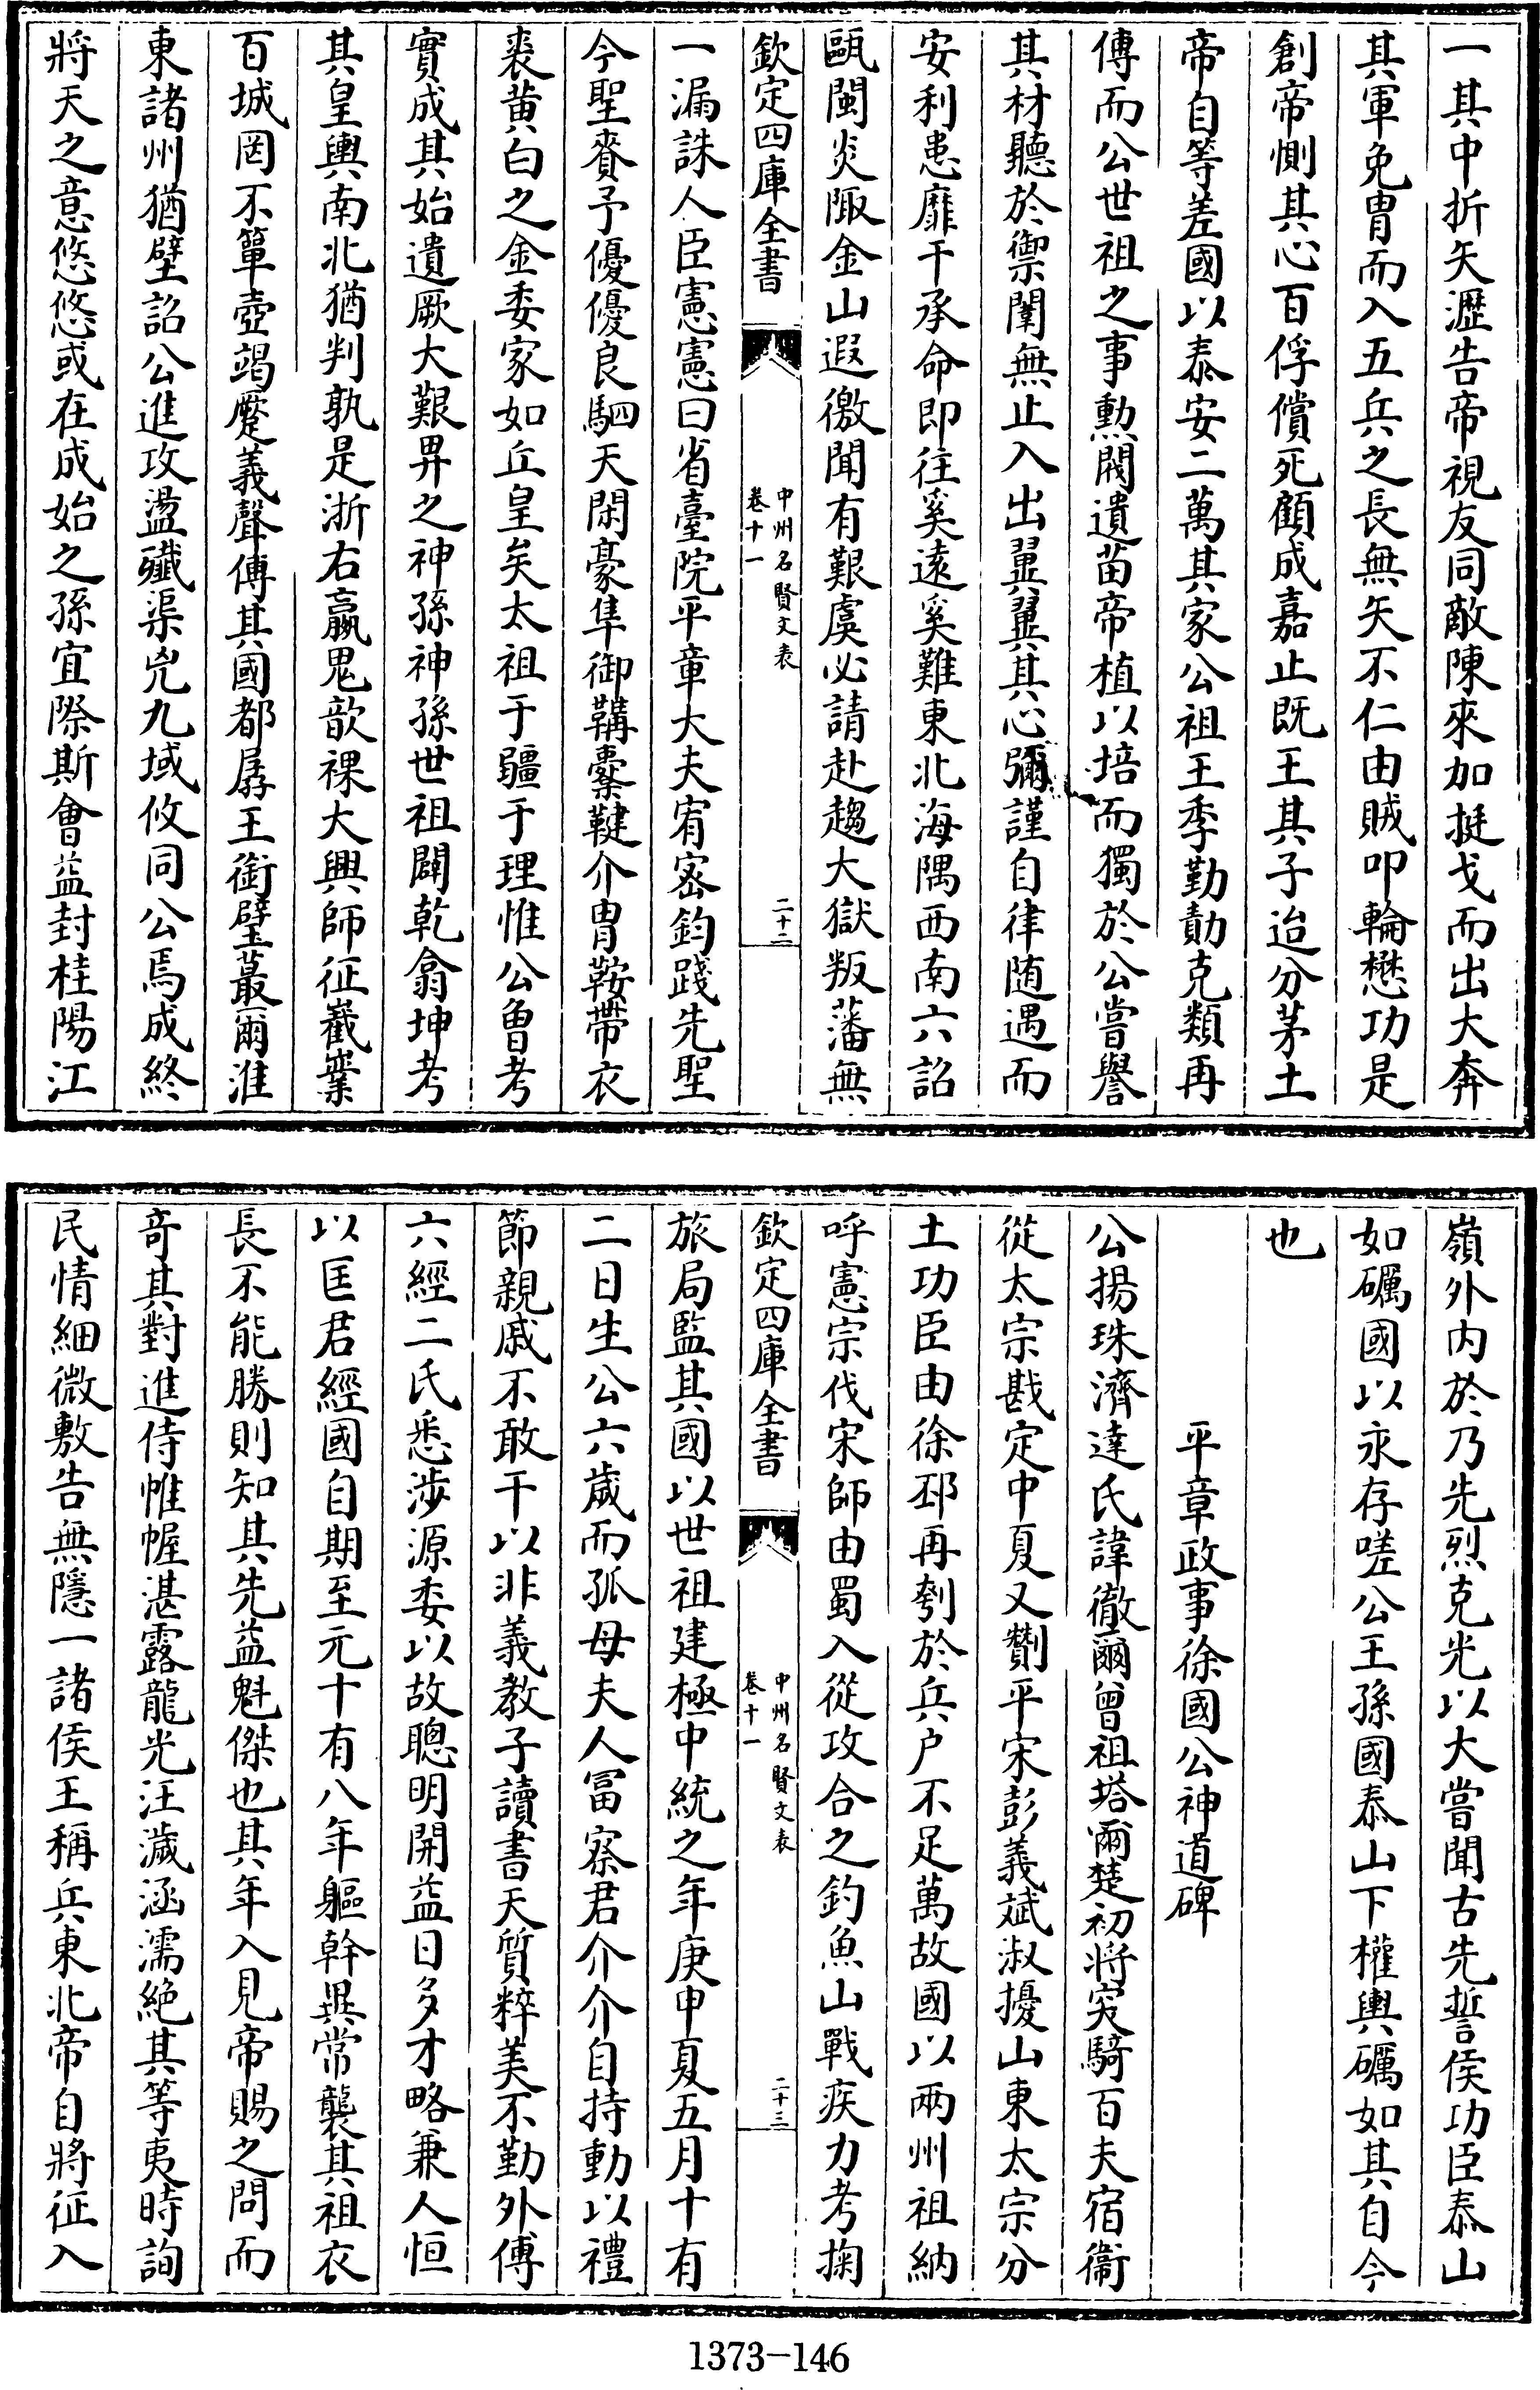 一其中折矢瀝告帝視友同敵陳來加挺戈而出大奔
其軍免胄而入五兵之長無矢不仁由賊叩輪懋功是
創帝惻其心百俘償死顧成嘉止既王其子迨分茅土
帝自等差國以泰安二萬其家公祖王季勤勣克類再
傅而公世祖之事勲閥遺苗帝植以培而獨於公嘗譽
其材聽於禦闈無止入出翼翼其心彌謹自律随遇而
安利患靡干承命即往奚遠奚難東北海隅西南六詔
甌閩炎陬金山遐徼聞有艱虞必請赴趨大獄叛藩無
欽定四庫全書
中州名賢文表
卷十一
二十二
一漏誅人臣憲憲曰省臺院平章大夫宥密鈞踐先聖
今聖賚予優優良駟天閑豪隼御鞲櫜鞬介胄鞍帶衣
裘黄白之金委家如丘皇矣太祖于疆于理惟公曽考
實成其始遺厥大艱畀之神孫神孫世祖闢乾翕坤考
其皇輿南北猶判孰是浙右嬴鬼歆祼大興師征嶻嶪
百城罔不簞壺竭蹷義聲傳其國都孱王銜璧蕞爾淮
東諸州猶壁詔公進攻盪殱渠兇九域攸同公焉成終
將天之意悠悠或在成始之孫宜際斯會益封桂陽江
嶺外内於乃先烈克光以大嘗聞古先誓侯功臣泰山
如礪國以永存嗟公王孫國泰山下權輿礪如其自今
也
平章政事徐國公神道碑
公揚珠濟達氏諱徹爾曾祖塔爾楚初將突騎百夫宿衞
從太宗戡定中夏又㔶平宋彭義斌淑擾山東太宗分
土功臣由徐邳再刳於兵户不足萬故國以兩州祖納
呼憲宗伐宋師由蜀入從攻合之釣魚山戰疾力考掬
欽定四庫全書
中州名賢文表
卷十一
二十三
旅局監其國以世祖建極中統之年庚申夏五月十有
二日生公六歲而孤母夫人冨察君介介自持動以禮
節親戚不敢干以非義教子讀書天質粹美不勤外傅
六經二氏悉涉源委以故聰明開益日多才略兼人恒
以匡君經國自期至元十有八年軀幹異常襲其祖衣
長不能勝則知其先益魁傑也其年入見帝賜之問而
竒其對進侍帷幄湛露龍光汪濊涵濡絶其等夷時詢
民情細微敷告無隱一諸侯王稱兵東北帝自將征入
1373-146